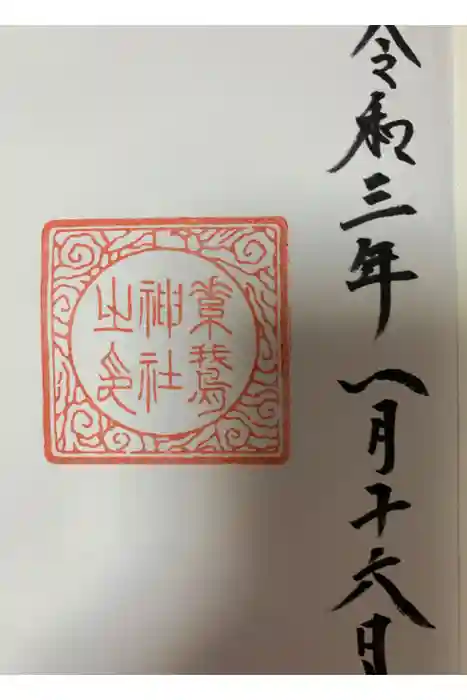 令和三年八月十六日
素鵞
神社
之印